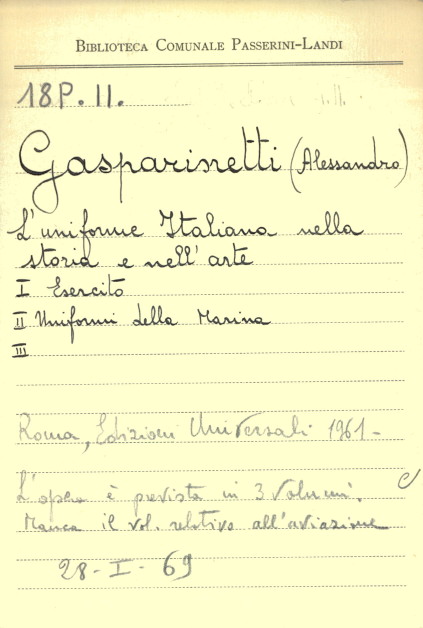 BIBLIOTECA COMUNALE PASSERINI-LANDI
18P. II.
Gasparinetti (Alessandro)
L'uniforme Italiana nella
storia e nell'arte
I Esercito
II Uniformi della Marina
III
Roma, Edizioni Universali 1961-
L'opera è prevista in 3 volumi.
Manca il vol. relativo all'aviazione
28-I-69